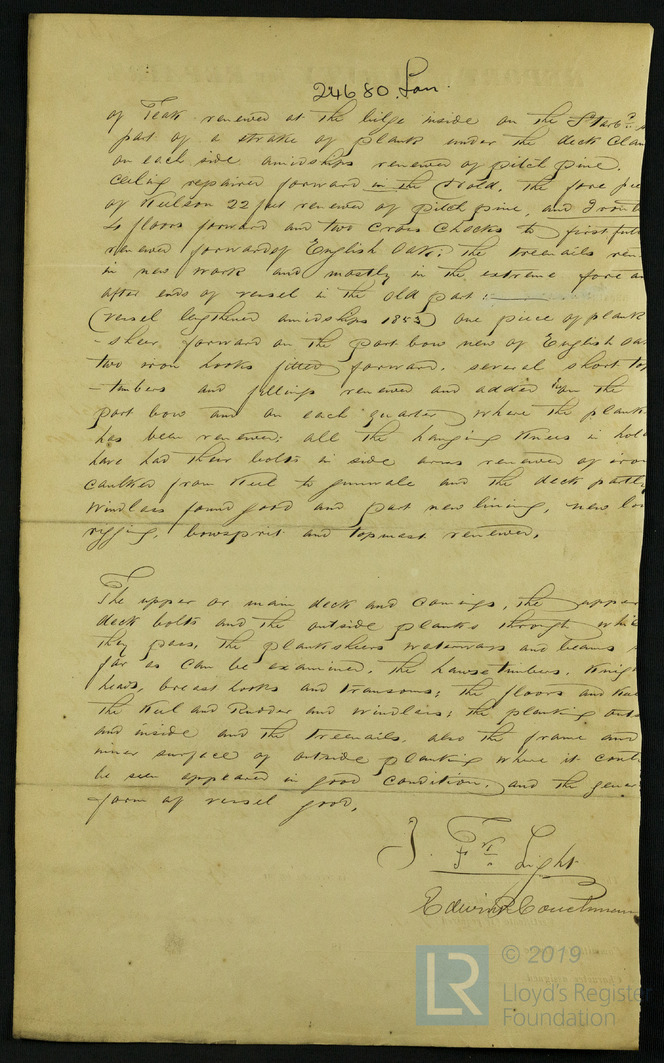 24680 Lon.
of Teak renewed at the bilge inside on the Starbd
part of a strake of plank under the deck Clam
on each side amidships renewed of pitch pine.
Ceiling repaired forward in the Hold. The fore pie
of Kelson 22 feet renewed of pitch pine, and
4 floors forward and two Cross Chocks to first futt
renewed forward of English Oak; the treenails ren
in new work and mostly in the extreme fore an
after ends of vessel in the old part:
(vessel lengthened amidships 1853) one piece of plank
-sheer forward on the port bow new of English Oa
two iron hooks fitted forward. several short to
-timbers and fillings renewed and added on the
port bow and on each quarter where the plank
has been renewed: all the hanging Knees in hol
have had their bolts in side arms renewed of iron
Caulked from Keel to gunwale and the deck partly
Windlass found good and part new lining, new lo
rigging, bowsprit and topmast renewed.
The upper or main deck and Comings, the upper
deck bolts and the outside planks through whic
they pass, the planksheers waterways and beams s
far as can be examined, the hawse timbers, Knig
heads, breast hooks and transoms; the floors and Kee
the Keel and Rudder and windlass; the planking outs
and inside and the treenails. also the frame and
inner surface of outside planking where it coul
be seen appeared in good condition, and the gener
form of vessel good.
J. Ft. Light
Edwin Couchman
© 2019
LR
Lloyd's Register
Foundation